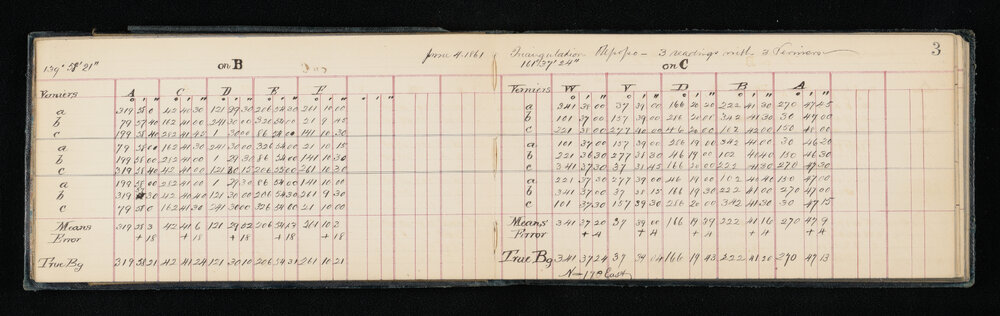 June 4. 1861
139° 58' 21"
on B
Verniers A C D E F
° ' " ° ' " ° ' " ° ' " ° ' " ° ' "
a 319 58 0 42 40 30 121 29 30 206 54 30 261 10 00
b 79 57 40 162 41 00 241 30 00 326 54 00 21 9 45
c 199 58 40 282 41 45 1 30 00 86 54 00 141 10 30
a 79 58 00 162 41 30 241 30 00 326 54 00 21 10 15
b 199 58 00 282 41 00 1 29 30 86 54 00 141 10 30
c 319 58 40 42 41 00 121 30 15 206 55 00 261 10 30
a 199 58 00 282 41 00 1 29 30 86 54 00 141 10 00
b 319 58 30 42 40 40 121 30 00 206 54 30 261 9 30
c 79 58 0 162 41 30 241 30 00 326 54 00 21 10 00
Means 319 58 3 42 41 6 121 29 02 206 54 13 261 10 3
Error + 18 + 18 + 18 + 18 + 18
True Bg 319 58 21 42 41 24 121 30 10 206 54 31 261 10 21
3
Triangulation 3 readings with 3 Verniers
161° 37' 24"
on C
Verniers W V D B A
° ' " ° ' " ° ' " ° ' " ° ' "
a 341 37 00 37 39 00 166 20 20 222 41 30 270 47 45
b 101 37 00 157 39 00 286 20 00 342 41 30 30 47 00
c 221 38 00 277 40 00 46 20 00 102 42 00 150 48 00
a 101 37 00 157 39 00 286 19 00 342 41 00 30 46 20
b 221 36 30 277 38 30 46 19 00 102 40 40 150 46 30
c 341 37 30 37 38 45 166 20 00 222 41 30 270 47 30
a 221 37 30 277 39 00 46 19 00 102 41 40 150 47 00
b 341 37 00 37 38 15 166 19 30 222 41 00 270 47 00
c 101 37 30 157 39 30 286 20 00 342 41 30 30 47 15
Means 341 37 20 37 39 00 166 19 39 222 41 16 270 47 9
Error + 4 + 4 + 4 + 4 + 4
True Bg 341 37 24 37 39 04 166 19 43 222 41 20 270 47 13
N–17° East